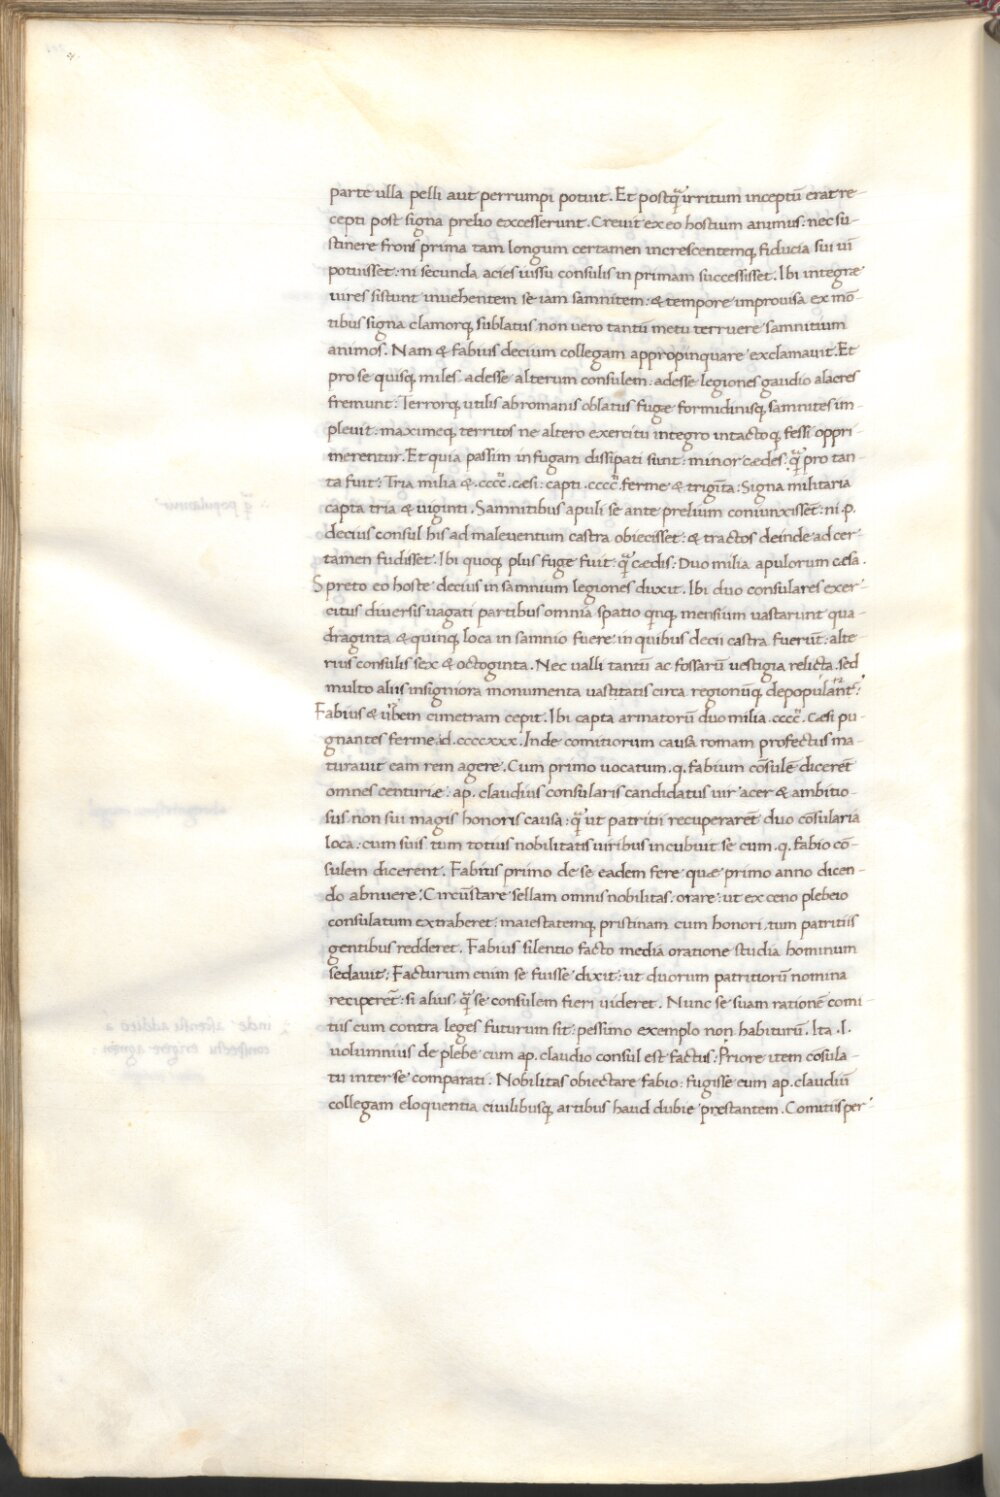 parte ulla pelli aut perrumpi potuit. Et postq̃ irritum inceptũ erat re-
cepti post signa prelio excesserunt. Creuit ex eo hostium animus: nec su-
stinere frons prima tam longum certamen increscentemq; fiducia sui ui
potuisset: ni secunda acies iussu consulis in primam successisset. Ibi integræ
uires sistunt inuehentem se iam samnitem: & tempore improuisa ex mõ-
tibus signa clamorq; sublatus non uero tantũ metu terruere samnitium
animos. Nam & fabius decium collegam appropinquare exclamauit. Et
pro se quisq; miles adesse alterum consulem: adesse legiones gaudio alacres
fremunt: Terrorq; utilis ab romanis oblatus fugæ formidinisq; samnites im-
pleuit: maximeq; territos ne altero exercitu integro intactoq; fessi oppri-
merentur. Et quia passim in fugam dissipati sunt: minor cædes: q̃ pro tan-
ta fuit: Tria milia &.cccc̃. cæsi: capti .cccc̃. ferme & trigĩta: Signa militaria
capta tria & uiginti. Samnitibus apuli se ante prelium coniunxissẽt: ni .p.
decius consul his ad maleuentum castra obiecisset: & tractos deinde ad cer-
tamen fudisset. Ibi quoq; plus fuge fuit: q̃ cædis: Duo milia apulorum cæsa.
Spreto eo hoste decius in samnium legiones duxit. Ibi duo consulares exer-
citus diuersis uagati partibus omnia spatio qnq; mensium uastarunt qua-
draginta & quinq; loca in samnio fuere: in quibus decii castra fuerũt: alte-
rius consulis sex & octoginta. Nec ualli tantũ ac fossarũ uestigia relicta. sed
multo aliis insigniora monumenta uastitatis circa regionũq; depopulant͂:
Fabius & urbem cimetram cepit. Ibi capta armatorũ duo milia .cccc̃. cæsi pu-
gnantes ferme .d.ccccxxx. Inde comitiorum causa romam profectus ma-
turauit eam rem agere. Cum primo uocatum .q. fabium cõsulẽ dicerẽt
omnes centuriæ: ap. claudius consularis candidatus uir acer & ambitio-
sus: non sui magis honoris causa: q̃ ut patritii recuperarẽt duo cõsularia
loca: cum suis tum totius nobilitatis uiribus incubuit se cum .q. fabio cõ-
sulem dicerent. Fabius primo de se eadem fere quæ primo anno dicen-
do abnuere: Circũstare sellam omnis nobilitas: orare: ut ex ceno plebeio
consulatum extraheret: maiestatemq; pristinam cum honori, tum patritiis
gentibus redderet. Fabius silentio facto media oratione studia hominum
sedauit: Facturum enim se fuisse dixit: ut duorum patritiorũ nomina
reciperẽt: si alius: q̃ se consulem fieri uideret. Nunc se suam rationẽ comi-
tiis cum contra leges futurum sit: pessimo exemplo non habiturũ. Ita .l.
uolumnius de plebe cum ap. claudio consul est factus: Priore item cõsula-
tu inter se comparati. Nobilitas obiectare fabio: fugisse eum ap. claudiũ
collegam eloquentia ciuilibusq; artibus haud dubie præstantem. Comitiis per-